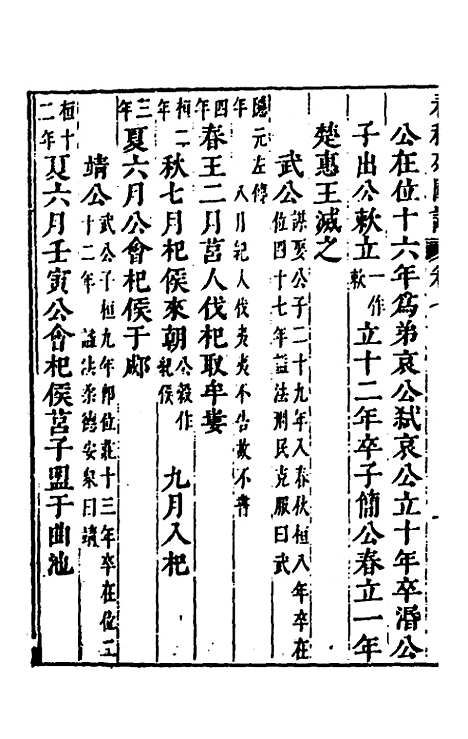 公在位十六年爲弟哀公弑哀公立十年卒湣公
子出公敕立一作敕立十二年卒子簡公春立一年
楚惠王滅之
武公謀娶公子二十九年入春秋桓八年卒在位四十七年謚法刑民克服曰武
隱元左傳年八月紀人伐夷夷不告故不書
四年春王二月莒人伐杞取牟婁
桓二年秋七月杞侯來朝公穀作紀侯九月入杞
三年夏六月公會杞侯于郕
靖公武公子桓九年卽位莊十三年卒在位二十二年謚法柔德安衆曰靖
桓十二年夏六月壬寅公會杞侯莒子盟于曲池